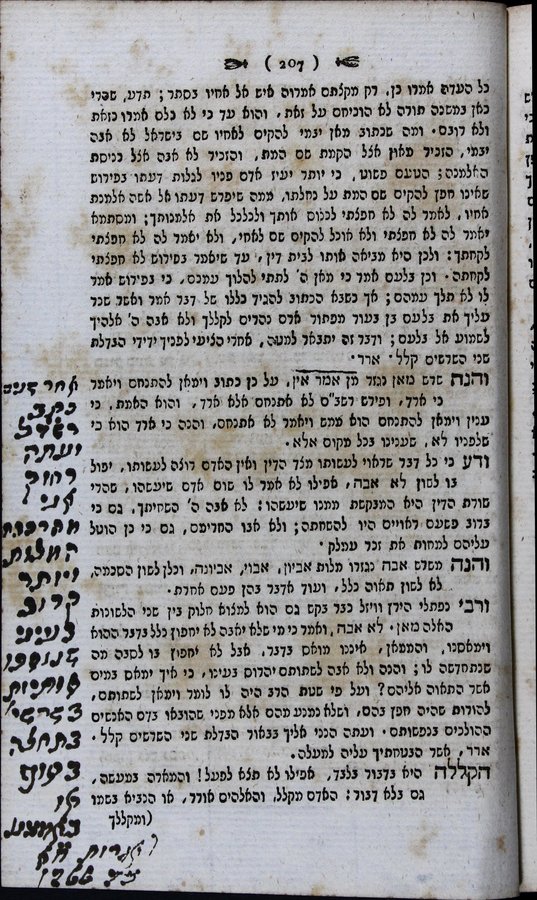 ( 207 )
כל העדה אמרו כן, רק מקלתם אמרוה איש אל אחיו בסתר; תדע, שהרי
כאן במשנה תורה לא הוכיחם על זאת, והוא עד כי לא כלם אמרו כזאת
ולא רובם. ומה שכתוב מאן יבמי להקים לאחיו שם בישראל לא אבה
יבמי, הזכיר מאון אצל הקמת שם המת, והזכיר לא אבה אצל כניסת
האלמנה; הטעם פשוט, כי יותר יעיז אדם פניו לגלות דעתו בפירוש
שאינו חפץ להקים שם המת על נחלתו, ממה שיפרש דעתו אל אשה אלמנת
אחיו, לאמר לה לא חפצתי לכנוס אותך ולכלכל את אלמנותך; ומסתמא
יאמר לה לא חפצתי ולא אוכל להקים שם לאחי, ולא יאמר לה לא חפצתי
לקחתך: ולכן היא מביאה אותו לבית דין, עד שיאמר בפירוש לא חפצתי
לקחתה. וכן בלעם אמר כי מאן ה' לתתי להלוך עמכם, כי בפירוש אמר
לו לא תלך עמהם; אך כשבא הכתוב להגיד כללו של דבר אמר ואשר שכר
עליך את בלעם בן בעור מפתור ארם נהרים לקללך ולא אבה ה' אלהיך
לשמוע אל בלעם; ודבר זה יתבאר למעה, אחרי הציעי לפניך ידידי הבדלת
שני השרשים קלל. ארר.
והנה שרש מאן נגזר מן אמר אין, על כן כתוב וימאן להתנחם ויאמר
כי ארד, ופירש רשב"ם לא אתנחם אלא ארד, והוא האמת, כי
ענין וימאן להתנחם הוא ממש ויאמר לא אתנחם, והנה כי ארד הוא כי
שלפניו לא, שענינו בכל מקום אלא.
ודע כי כל דבר שראוי לעשותו מצד הדין ואין האדם רוצה לעשותו, יפול
בו לשון לא אבה, אפילו לא אמר לו שום אדם שיעשהו, שהרי
שורת הדין היא המבקשת ממנו שיעשהו: לא אבה ה' השחיתך, גם כי
ברוב פשעם ראויים היו להשחתה; ולא אבו החרימם, גם כי כן הוטל
עליהם למחות את זכר עמלק.
והנה משרש אבה נגזרו מלות אביון, אבוי, אביונה, וכלן לשון הסכמה,
לא לשון תאוה כלל, ועוד אדבר בהן פעם אחרת.
ורבי נפתלי הירץ וויזל כבר בקש גם הוא למצוא חלוק בין שני הלשונות
האלה מאן. לא אבה, ואמר כי מי שלא יאבה לא יחפוץ כלל בדבר ההוא
וימאסנו, והממאן, איננו מואס בדבר, אבל לא יחפוץ בו לסבה מה
שנתחדשה לו; והנה ולא אבה לשתותם יהרוס בעינו, כי איך ימאס במים
אשר התאוה אליהם? ועל פי שטת הרב היה לו לומר וימאן לשתותם,
להורות שהיה חפץ בהם, ושלא נמנע מהם אלא מפני שהובאו בדם האנשים
ההולכים בנפשותם. ועתה הנני אליך בבאור הבדלת שני השרשים קלל.
ארר, אשר הבטחתיך עליה למעלה.
הקללה היא בדבור בלבד, אפילו לא תצא לפעל! והמארה במעשה,
גם בלא דבור: האדם מקלל, והאלהים אורר, או הנביא בשמו
(ומקללך
אחר שנים
כתב
רשד"ל
ועתה
רחוק
אני
מהרכבת
המלות
ויותר
קרוב
לעיני
שנוספו
אותיות
בשרשי
בתחלה
בסוף
או
באמצע